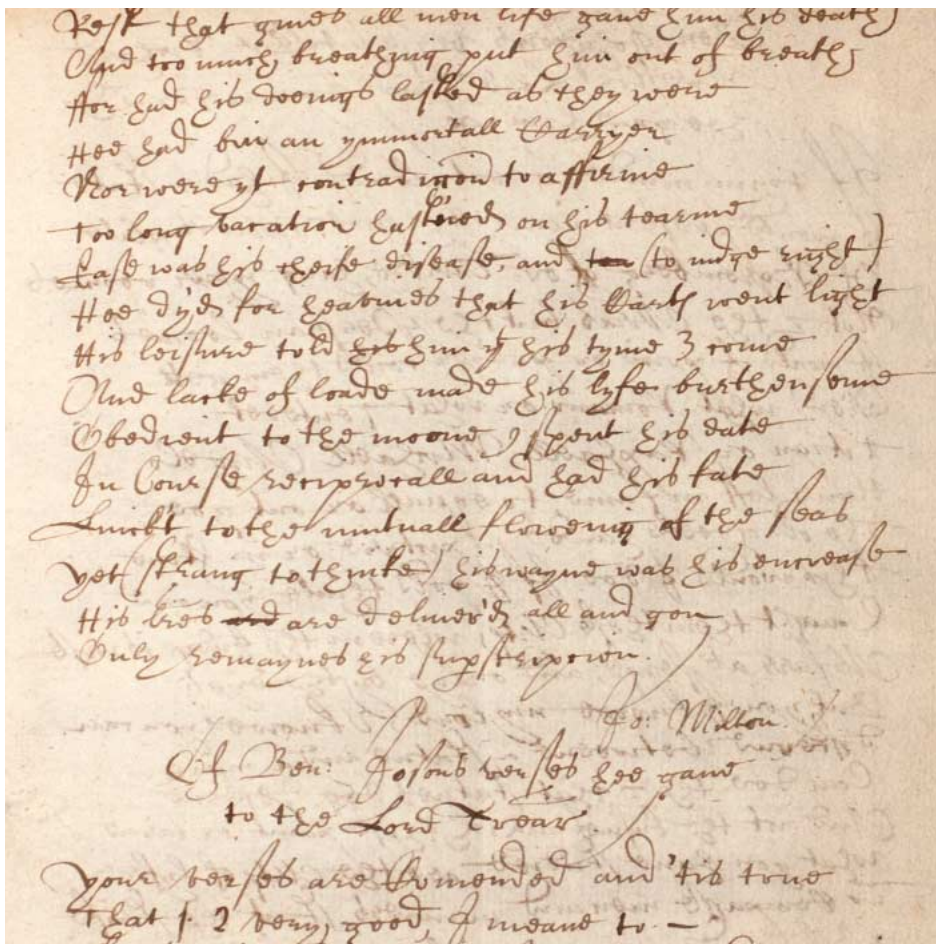 Rest that giues all men life gaue him his death
And too much breathing put him out of breath
ffor had his doeings lasted as they were
Hee had bin an ymmortall Carryer
Nor were yt contradiccon to affirme
Too long vacation hastned on his tearme
Ease was his cheife disease, and (to iudge right)
Hee dy'ed for heauines that his Cart went light
His leisure told him yt his tyme come
And lacke of loade made his lyfe burthensome
Obedient to the moone spent his date
In Course reciprocall and had his fate
Linckt to the mutuall floweing of the seas
yet (strang to thinke) his wayne was his encrease
His lres are deliuer'd all and gon
Only remaynes his superscripcion.
Jo: Milton.
Of Ben: Josons verses hee gaue
to the Lord Trear
your verses are Comended and 'tis true
That 1. 2 very good, I meane to —